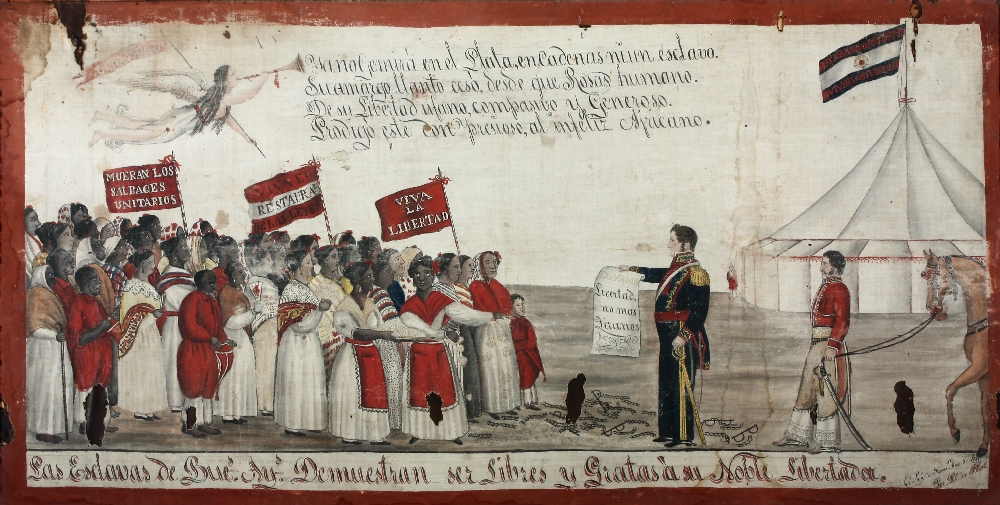 Ya no Gemirá en el Plata, en Cadenas ni un esclavo.
Su amargo llanto cesó, desde que Rosas humano.
De su Libertad ufano, compasivo y Generoso.
Prodigó este don precioso, al infeliz Africano.
MUERAN LOS
SALBAGES
UNITARIOS
RESTAURA
VIVA
LA
LIBERTAD
Livertad,
no mas
Tiranos
Las Esclavas de Bue.s Ay.s Demuestran ser Libres y Gratas à su Noble Libertador.